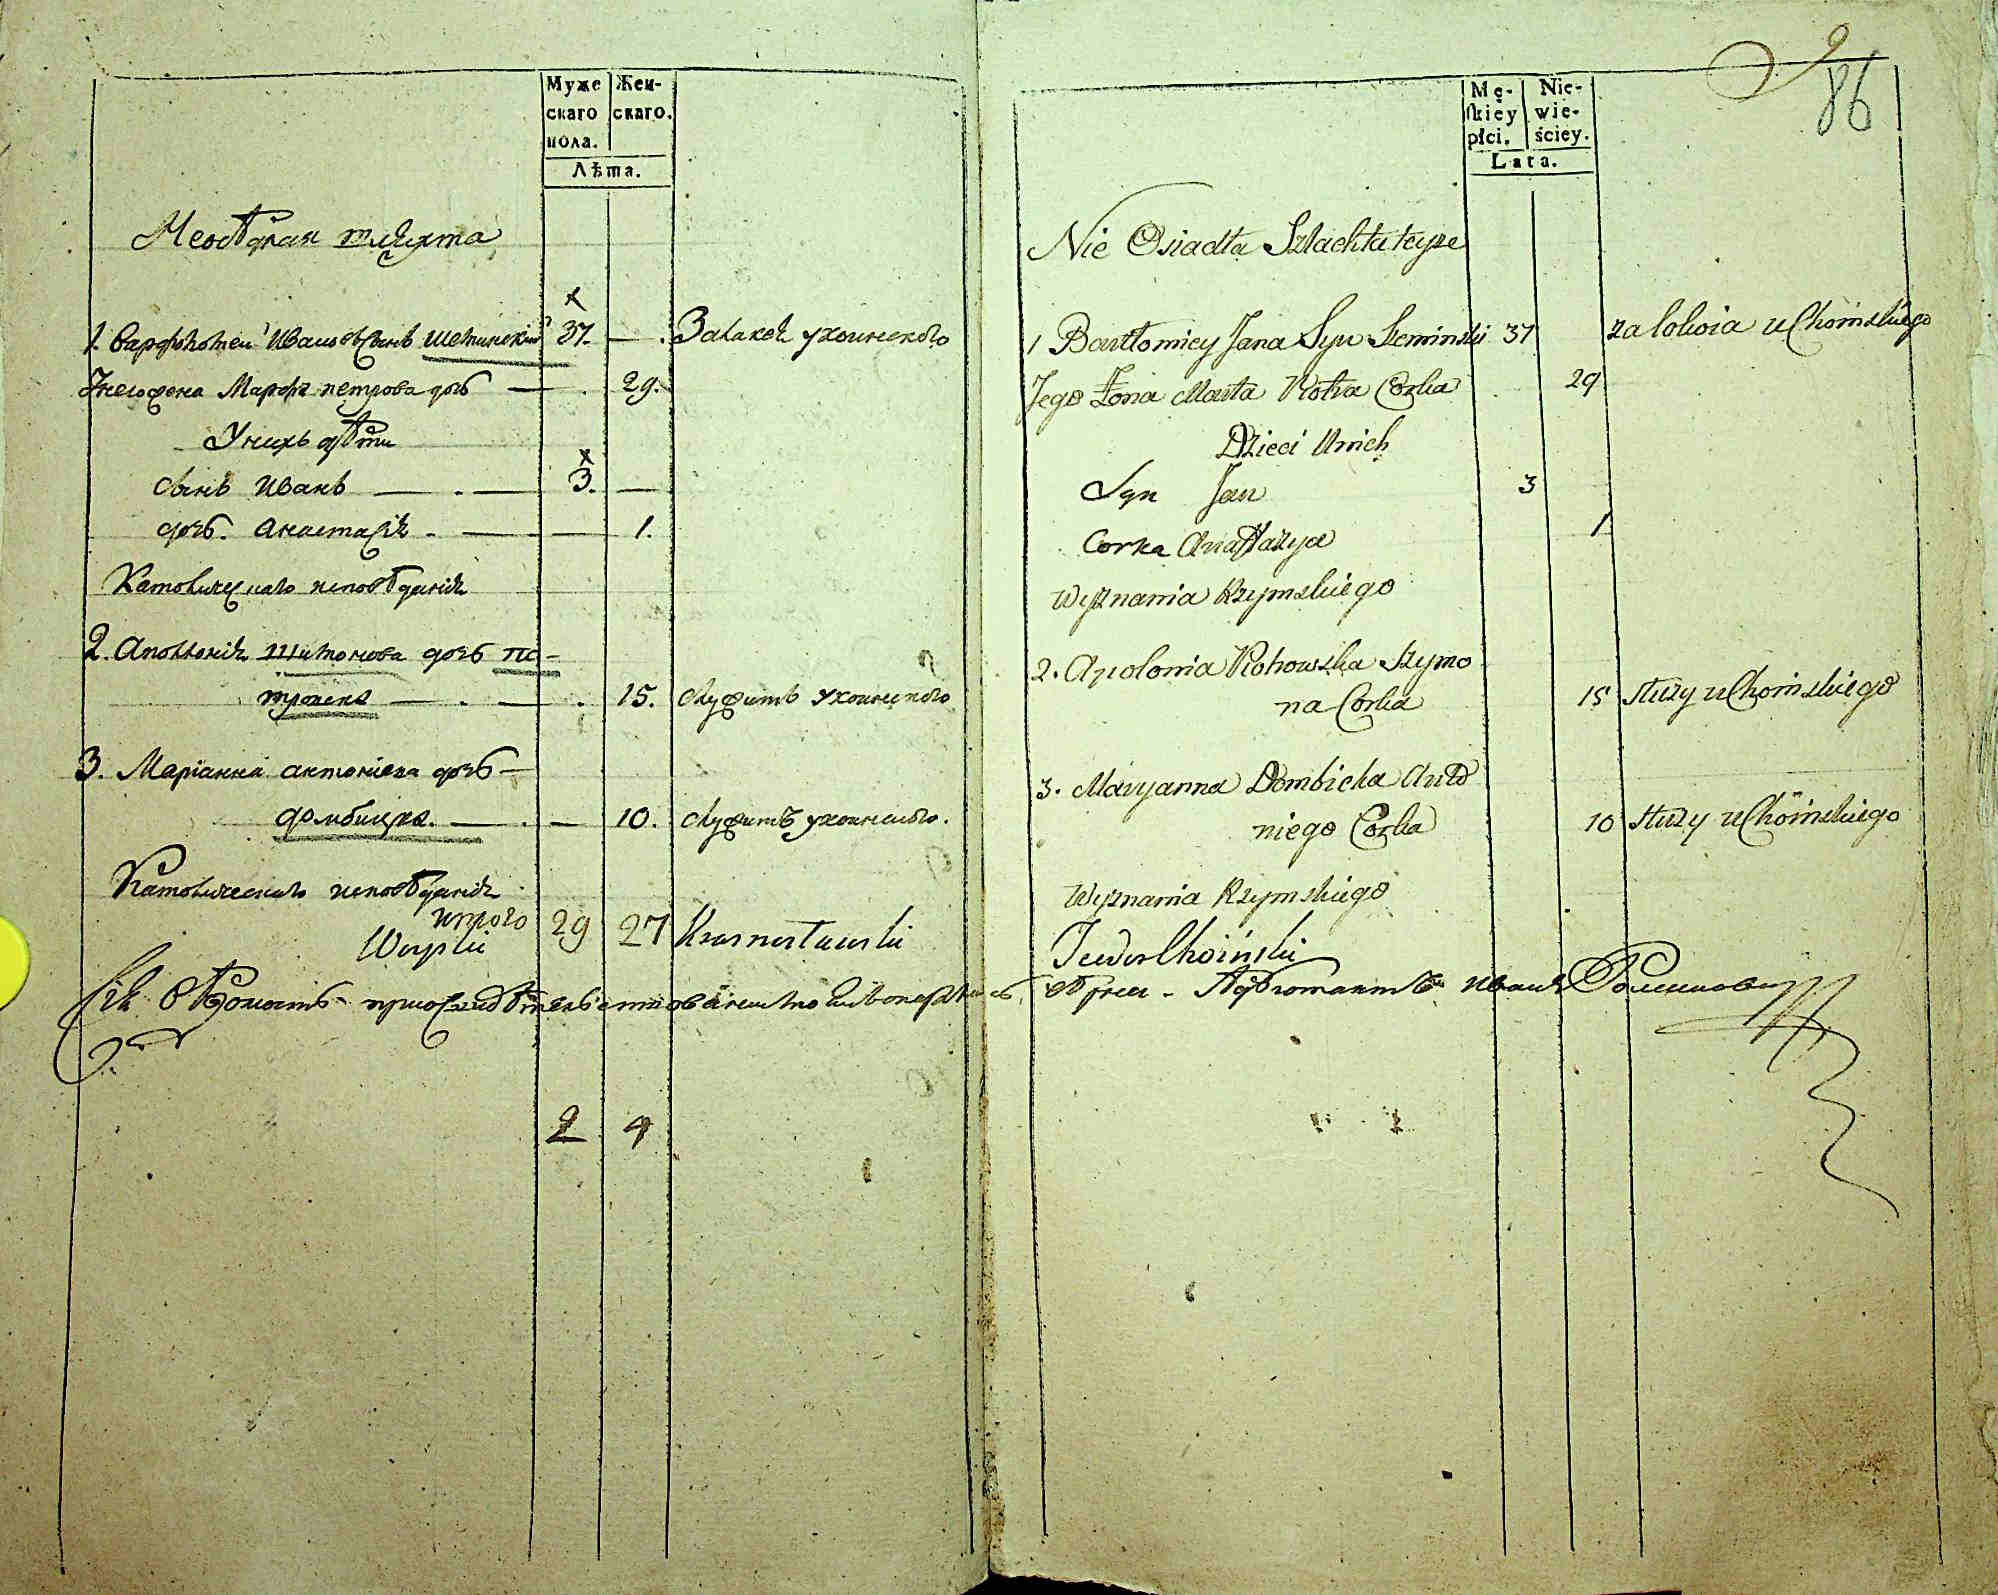 Муже
скаго
пола.
Жен-
скаго.
Лѣта.
Неосѣдлая шляхта
1. Варфоломей Ивановъ Сынъ Шетинский 37. — . За лакея у хоинского
У него жена Марфа петрова дочь — . 29.
У нихъ дѣти
сынъ Иванъ — . — 3. —
дочь. Анастасія . — — 1.
Католическаго исповѣданія
2. Аполлонія Шимонова дочь по-
— . — . 15. Служитъ у хоинского
3. Маріанна антоніева дочь —
домбицка. — . — 10. Служитъ у хоинского.
Католическаго исповѣданія
итого 29 27
2 4
9
86
Mę-
skiey
płci.
Nie-
wie-
ściey.
Lata.
Nie Osiadła Szlachta
1 Bartłomiey Jana Syn Sleminski 37 za lokaia u Choinskiego
Jego Żona Marta Piotra Corka 29
Dzieci U nich
Syn Jan 3
Corka Anastazya 1
Wyznania Rzymskiego
2. Apolonia Szymo
na Corka 15 Służy u Choinskiego
3. Maryanna Dombicka Anto
niego Corka 10 Służy u Choinskiego
Wyznania Rzymskiego
Choiński
Иванъ